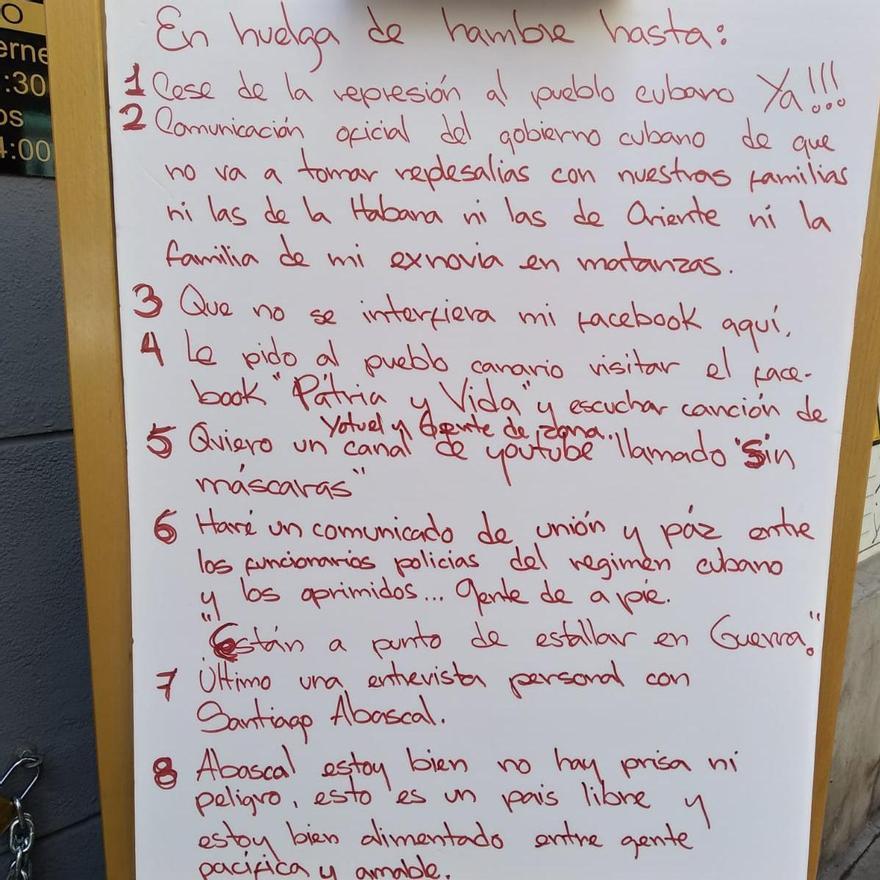 O
erne
:30
os
4:00
En huelga de hambre hasta:
1 Cese de la represión al pueblo cubano Ya!!!
2 Comunicación oficial del gobierno cubano de que
no va a tomar replesalias con nuestras familias
ni las de la Habana ni las de Oriente ni la
familia de mi exnovia en matanzas.
3 Que no se interfiera mi facebook aquí.
4 Le pido al pueblo canario visitar el face-
book "Pátria y Vida" y escuchar canción de
Yotuel y Gente de zona.
5 Quiero un canal de youtube llamado "Sin
máscaras"
6 Haré un comunicado de unión y páz entre
los funcionarios policias del regimen cubano
y los oprimidos... gente de a pie.
"Están a punto de estallar en Guerra."
7 Último una entrevista personal con
Santiago Abascal.
8 Abascal estoy bien no hay prisa ni
peligro, esto es un pais libre y
estoy bien alimentado entre gente
pacífica y amable.